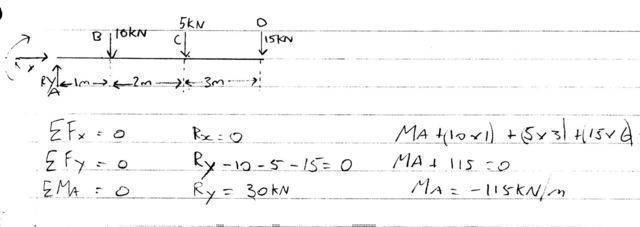 5KN D
B 10KN C 15KN
x
Ry A 1m 2m 3m
ΣFx = 0 Rx = 0 MA + (10x1) + (5x3) + (15x6)
ΣFy = 0 Ry - 10 - 5 - 15 = 0 MA + 115 = 0
ΣMA = 0 Ry = 30KN MA = -115KN/m